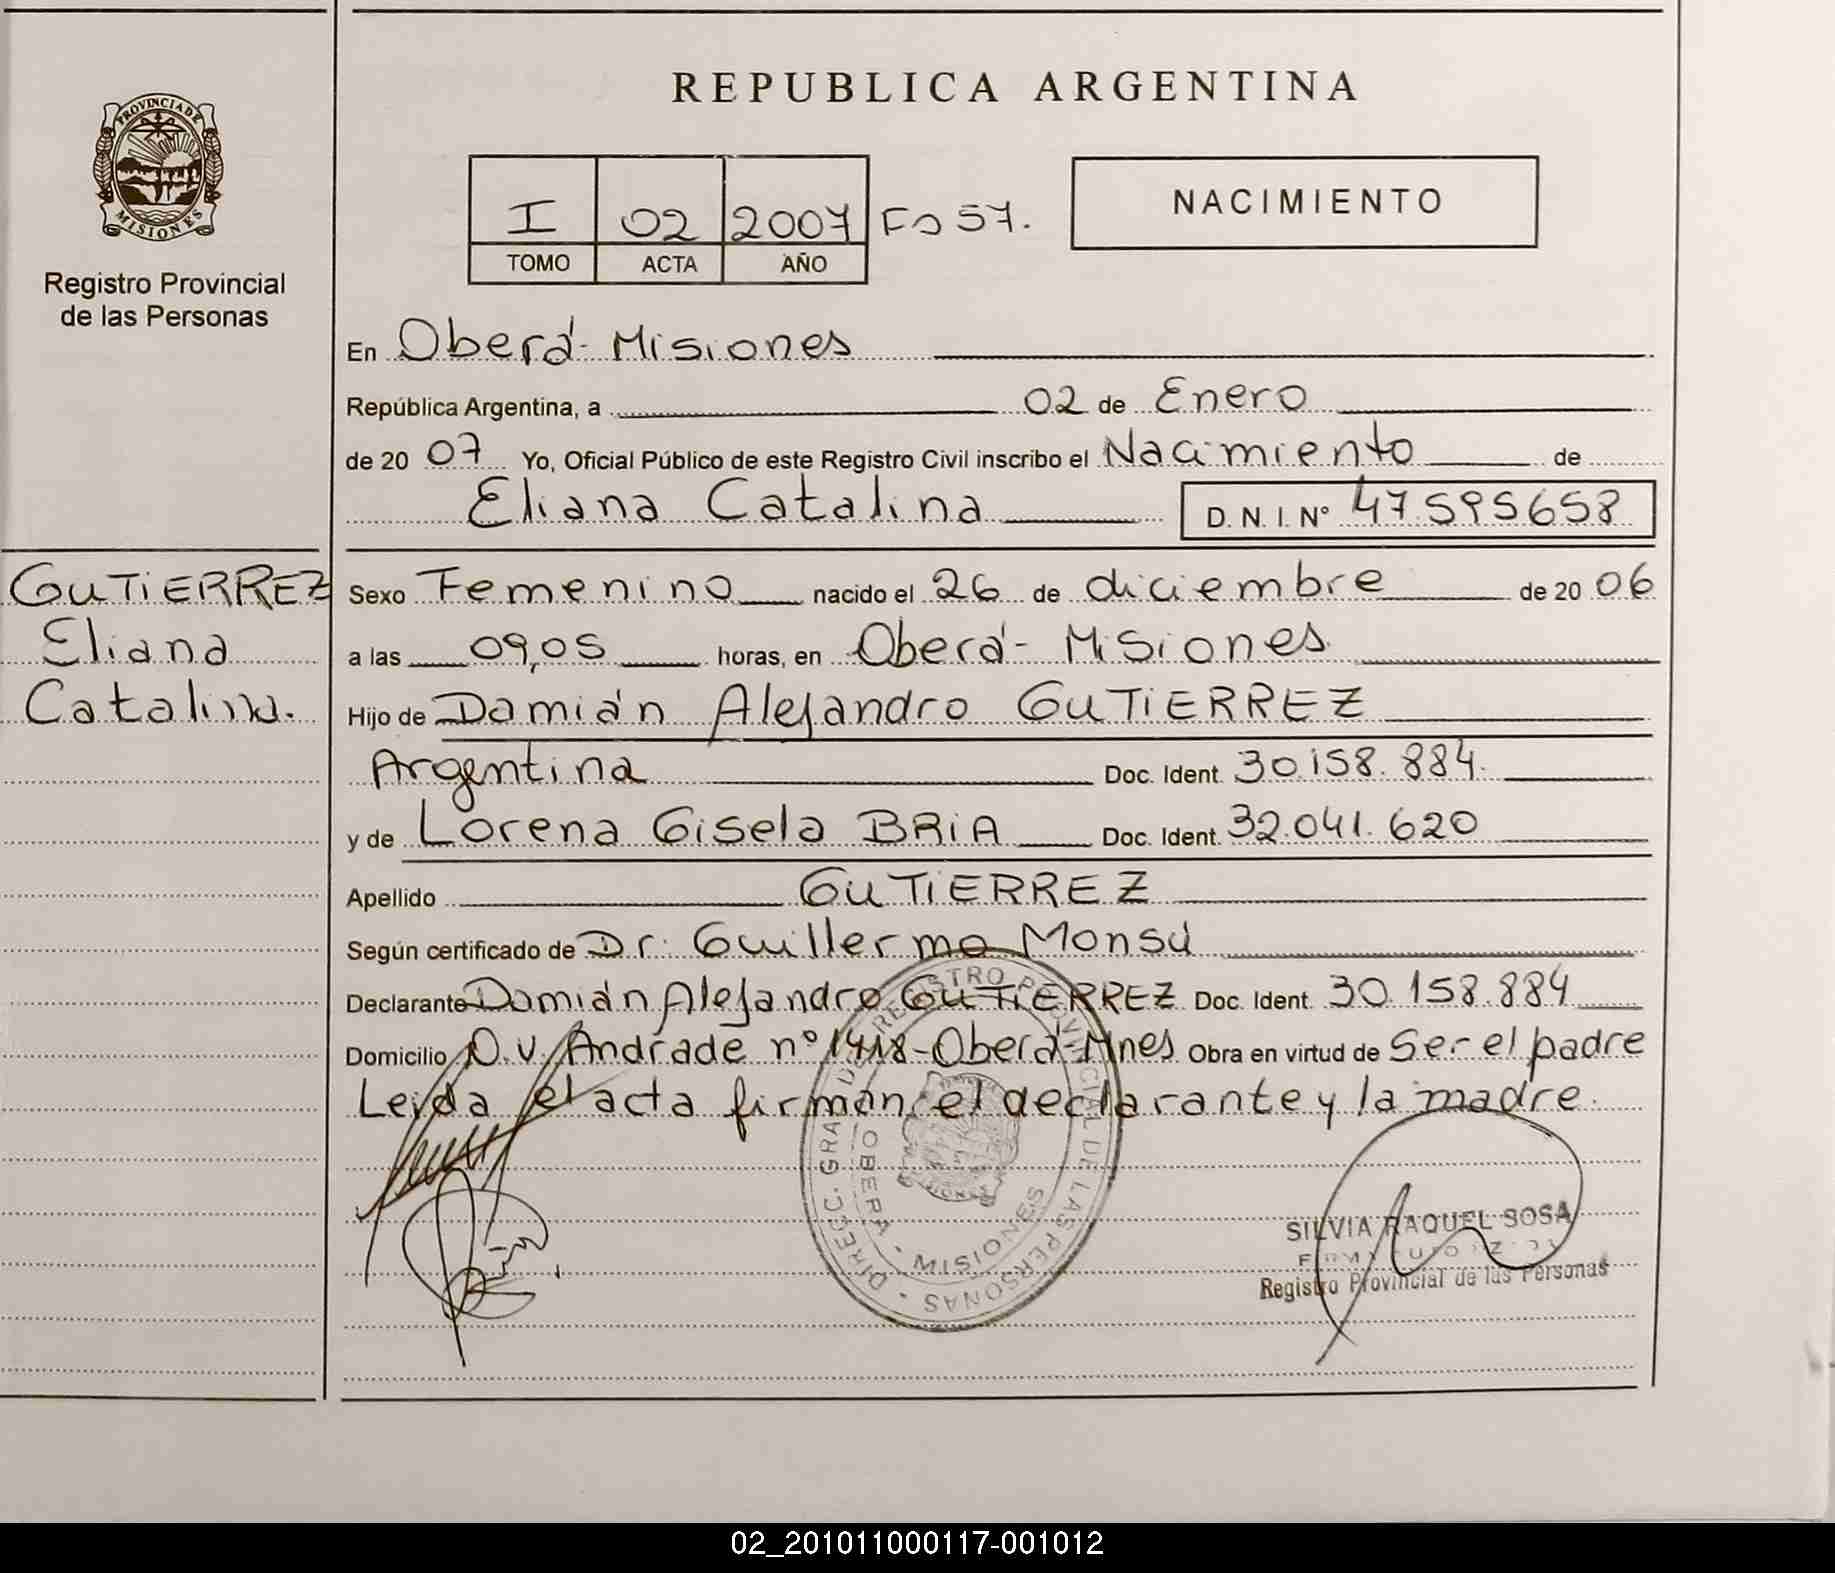 REPUBLICA ARGENTINA
PROVINCIA DE MISIONES
Registro Provincial
de las Personas
I 02 2007 Fo 57.
TOMO ACTA AÑO
NACIMIENTO
En Oberá - Misiones
República Argentina, a 02 de Enero
de 20 07 Yo, Oficial Público de este Registro Civil inscribo el Nacimiento de
Eliana Catalina D. N. I. N° 47.595658
GUTiERREZ
Eliana
Catalina.
Sexo Femenino nacido el 26 de diciembre de 20 06
a las 09,05 horas, en Oberá - Misiones
Hijo de Damián Alejandro GUTiERREZ
Argentina Doc. Ident. 30.158.884.
y de Lorena Gisela BRiA Doc. Ident. 32.041.620
Apellido GUTiERREZ
Según certificado de Dr. Guillermo Monsú
Declarante Damián Alejandro GUTiERREZ Doc. Ident. 30.158.884
Domicilio O.V. Andrade n° 1418-Oberá-Mnes Obra en virtud de Ser el padre
Leída el acta firman, el declarante y la madre.
DIRECC. GRAL DE REGISTRO PROVINCIAL DE LAS PERSONAS
OBERA - MISIONES
SILVIA RAQUEL SOSA
Registro Provincial de las Personas
02_201011000117-001012